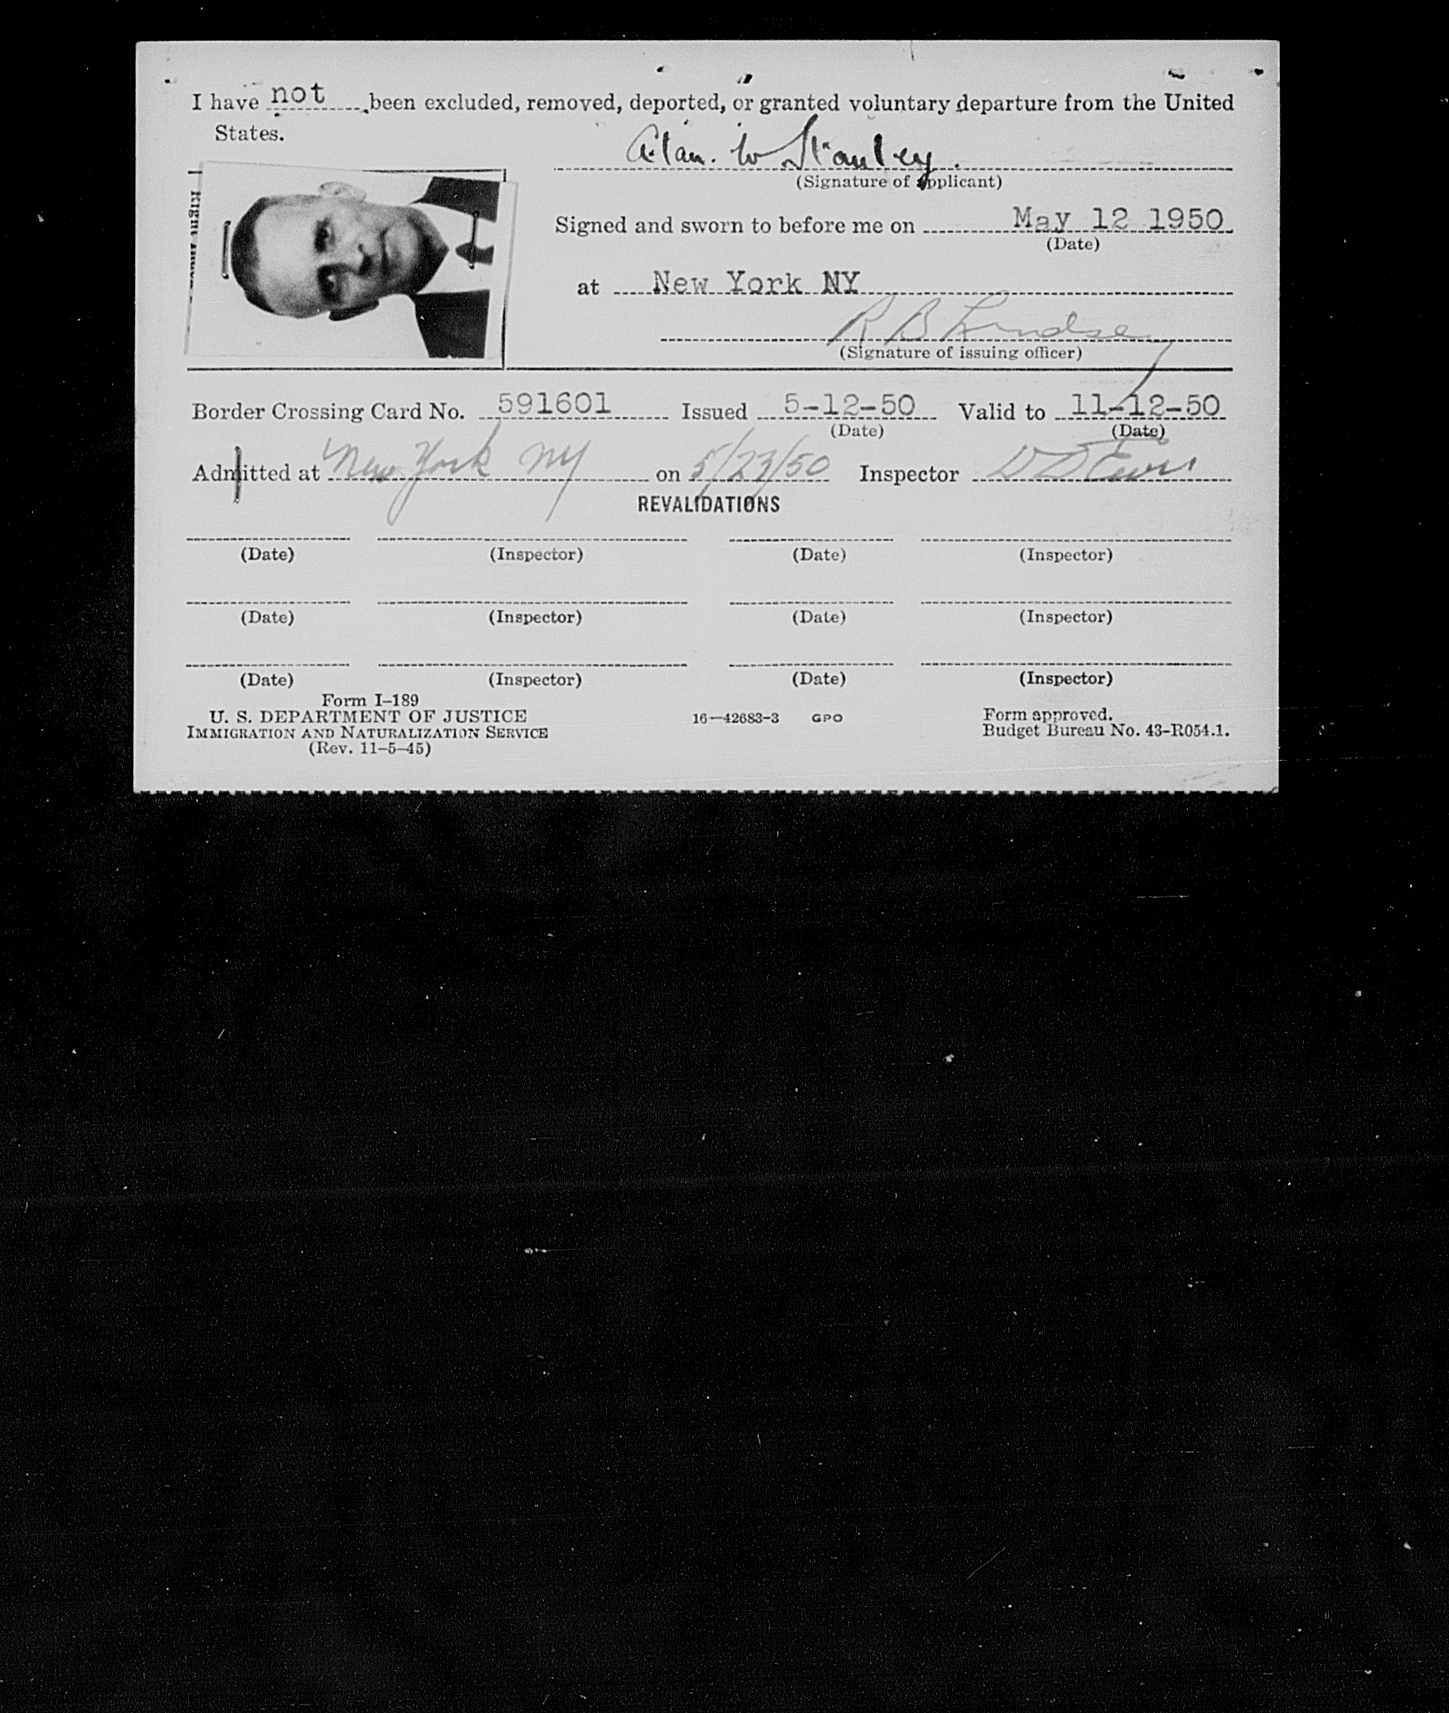 I have not been excluded, removed, deported, or granted voluntary departure from the United
States.
Alan. W Stanley.
(Signature of applicant)
Signed and sworn to before me on May 12 1950
(Date)
at New York NY
R B Lindsey
(Signature of issuing officer)
Border Crossing Card No. 591601 Issued 5-12-50 Valid to 11-12-50
(Date) (Date)
Admitted at New York NY on 5/23/50 Inspector
REVALIDATIONS
(Date) (Inspector) (Date) (Inspector)
(Date) (Inspector) (Date) (Inspector)
(Date) (Inspector) (Date) (Inspector)
Form I-189
U. S. DEPARTMENT OF JUSTICE
IMMIGRATION AND NATURALIZATION SERVICE
(Rev. 11-5-45)
16—42683-3 GPO
Form approved.
Budget Bureau No. 43-R054.1.